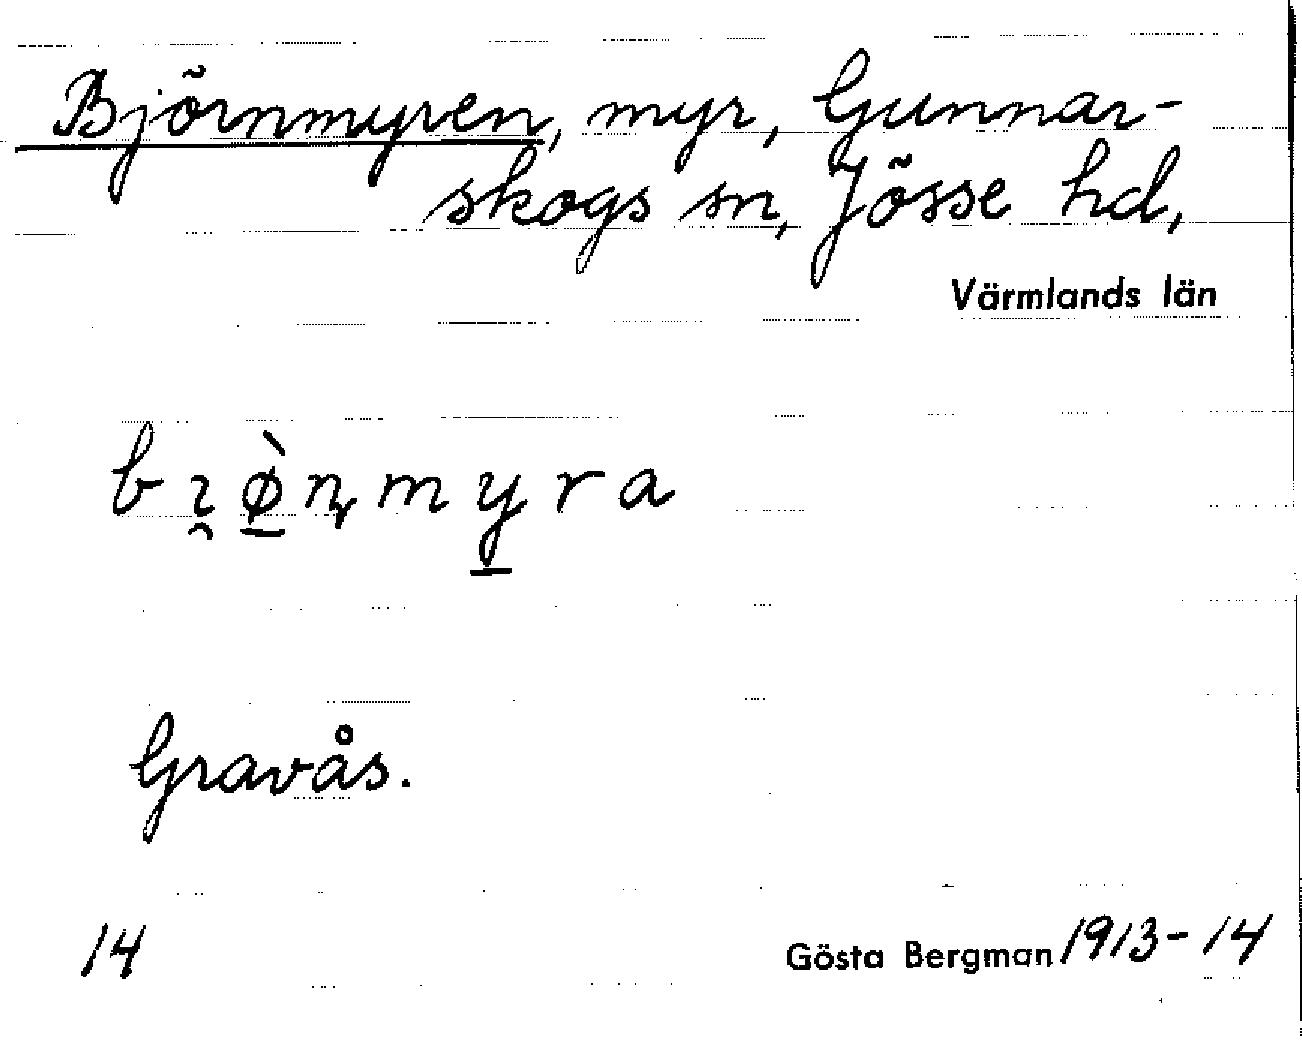 Björnmyren, myr, Gunnar-
skogs sn, Jösse hd,
Värmlands län
bɿ̯ø̱̀ɳmy̱ra
Gravås.
14
Gösta Bergman 1913-14